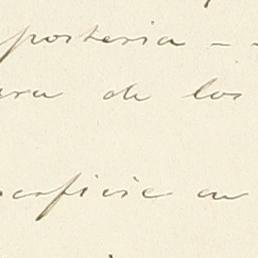 posteria - -
ra de los
erficie en